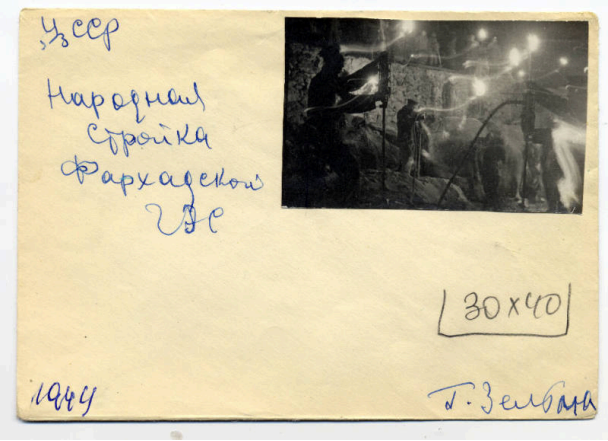 УзССР
Народная
стройка
Фархадской
ГЭС
30х40
1944
Г. Зельма